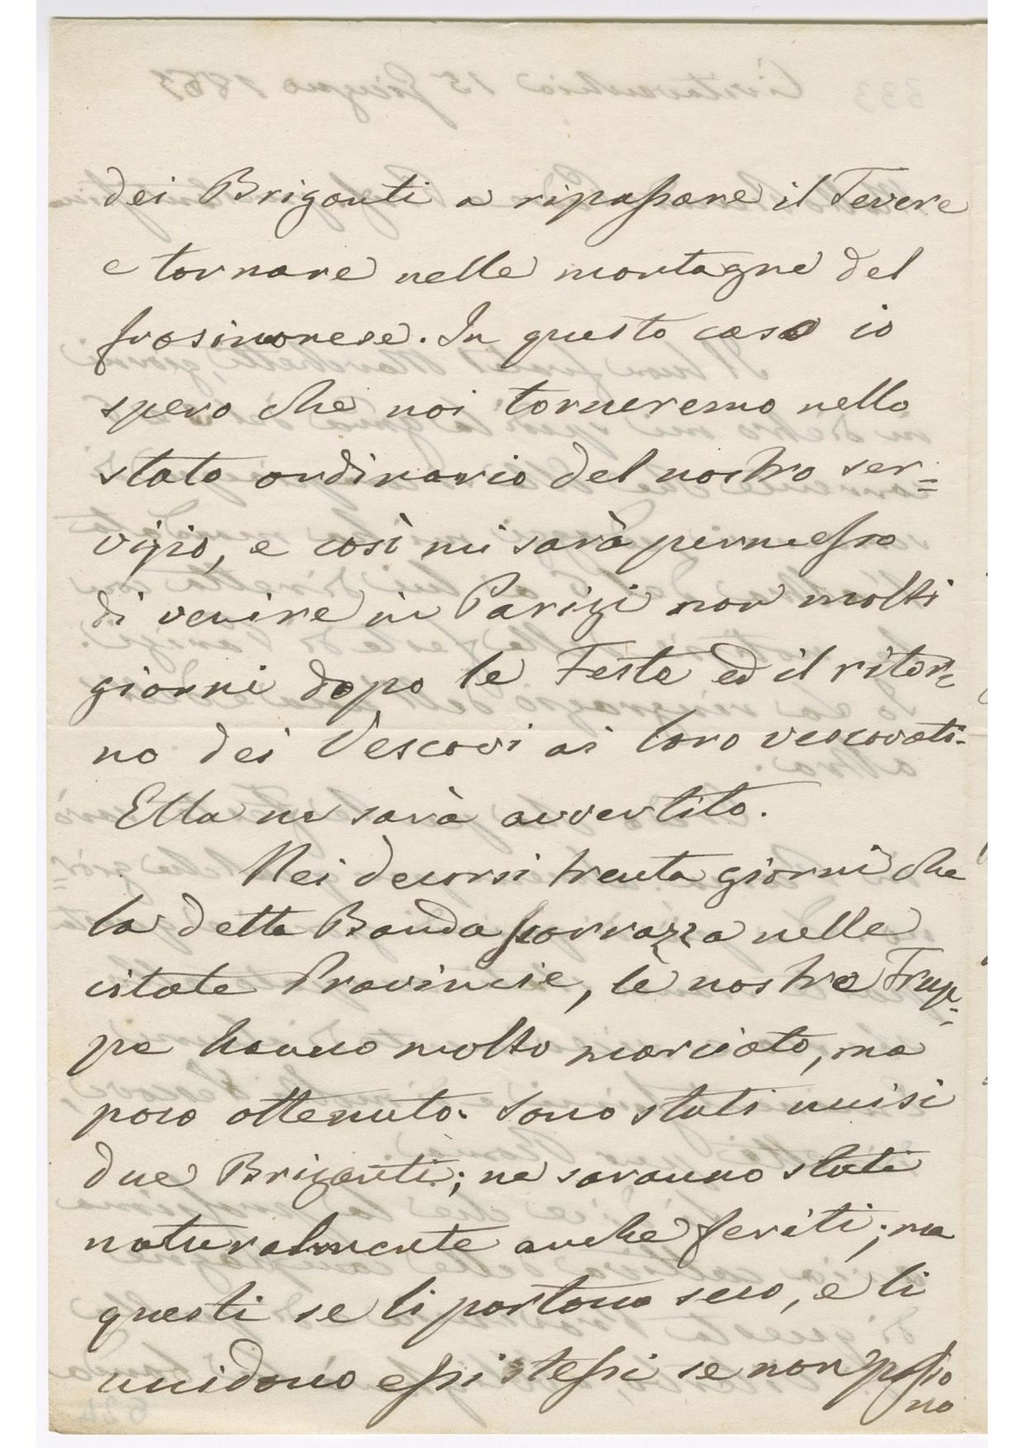 dei Briganti a ripassare il Tevere
e tornare nelle montagne del
frosinonese. In questo caso io
spero che noi torneremo nello
stato ordinario del nostro ser=
vizio, e così mi sarà permesso
di venire in Parigi non molti
giorni dopo le Feste ed il ritor=
no dei Vescovi ai loro vescovati.
Ella ne sarà avvertito.
Nei decorsi trenta giorni che
la detta Banda scorrazza nelle
citate Provincie, le nostre Trup=
pe hanno molto marciato, ma
poco ottenuto. Sono stati uccisi
due Briganti; ne saranno stati
naturalmente anche feriti; ma
questi se li portono seco, e li
uccidono essi stessi se non posso
no